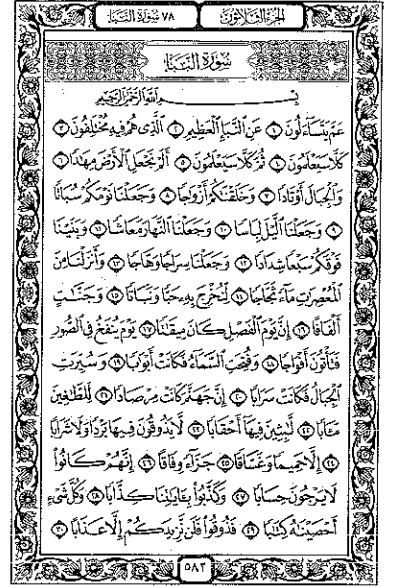 الجُزْءُ الثَّلَاثُونَ
٧٨ سُورَةُ النَّبَإِ
سُورَةُ النَّبَإِ
بِسْمِ ٱللَّهِ ٱلرَّحْمَٰنِ ٱلرَّحِيمِ
عَمَّ يَتَسَآءَلُونَ ١ عَنِ ٱلنَّبَإِ ٱلْعَظِيمِ ٢ ٱلَّذِى هُمْ فِيهِ مُخْتَلِفُونَ ٣
كَلَّا سَيَعْلَمُونَ ٤ ثُمَّ كَلَّا سَيَعْلَمُونَ ٥ أَلَمْ نَجْعَلِ ٱلْأَرْضَ مِهَٰدًا ٦
وَٱلْجِبَالَ أَوْتَادًا ٧ وَخَلَقْنَٰكُمْ أَزْوَٰجًا ٨ وَجَعَلْنَا نَوْمَكُمْ سُبَاتًا
٩ وَجَعَلْنَا ٱلَّيْلَ لِبَاسًا ١٠ وَجَعَلْنَا ٱلنَّهَارَ مَعَاشًا ١١ وَبَنَيْنَا
فَوْقَكُمْ سَبْعًا شِدَادًا ١٢ وَجَعَلْنَا سِرَاجًا وَهَّاجًا ١٣ وَأَنزَلْنَا مِنَ
ٱلْمُعْصِرَٰتِ مَآءً ثَجَّاجًا ١٤ لِّنُخْرِجَ بِهِۦ حَبًّا وَنَبَاتًا ١٥ وَجَنَّٰتٍ
أَلْفَافًا ١٦ إِنَّ يَوْمَ ٱلْفَصْلِ كَانَ مِيقَٰتًا ١٧ يَوْمَ يُنفَخُ فِى ٱلصُّورِ
فَتَأْتُونَ أَفْوَاجًا ١٨ وَفُتِحَتِ ٱلسَّمَآءُ فَكَانَتْ أَبْوَٰبًا ١٩ وَسُيِّرَتِ
ٱلْجِبَالُ فَكَانَتْ سَرَابًا ٢٠ إِنَّ جَهَنَّمَ كَانَتْ مِرْصَادًا ٢١ لِّلطَّٰغِينَ
مَـَٔابًا ٢٢ لَّٰبِثِينَ فِيهَآ أَحْقَابًا ٢٣ لَّا يَذُوقُونَ فِيهَا بَرْدًا وَلَا شَرَابًا
٢٤ إِلَّا حَمِيمًا وَغَسَّاقًا ٢٥ جَزَآءً وِفَاقًا ٢٦ إِنَّهُمْ كَانُوا۟
لَا يَرْجُونَ حِسَابًا ٢٧ وَكَذَّبُوا۟ بِـَٔايَٰتِنَا كِذَّابًا ٢٨ وَكُلَّ شَىْءٍ
أَحْصَيْنَٰهُ كِتَٰبًا ٢٩ فَذُوقُوا۟ فَلَن نَّزِيدَكُمْ إِلَّا عَذَابًا ٣٠
٥٨٢